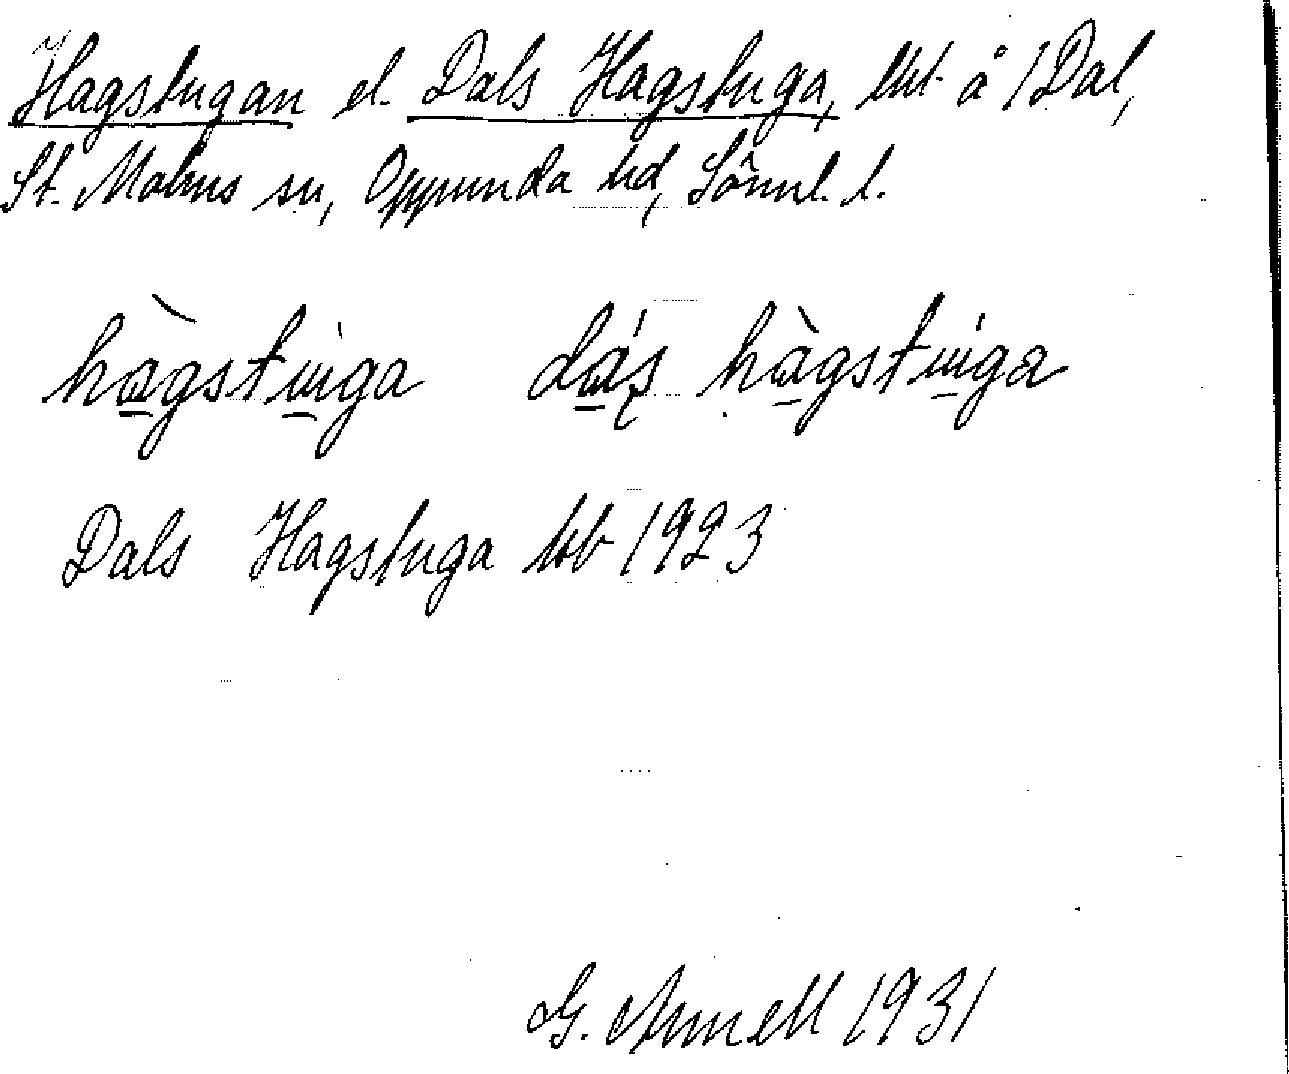 Hagstugan el. Dals Hagstuga, lht å 1 Dal,
St. Malms sn, Oppunda hd, Söml. l.
hàgstuga dáș hàgstuga
Dals Hagstuga kb 1923
G. Amnell 1931